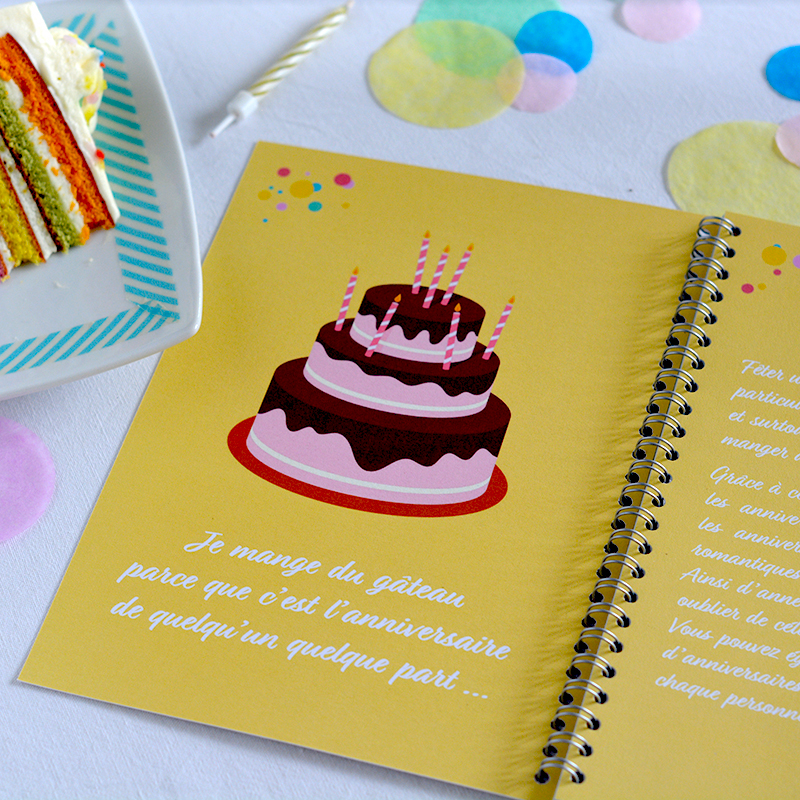 Je mange du gâteau
parce que c'est l'anniversaire
de quelqu'un quelque part ...
Fêter
particul
et surtou
manger
Grâce à
les anniver
les anniver
romantiques
Ainsi d'anné
oublier de
Vous pouvez ég
d'anniversaires
chaque personn